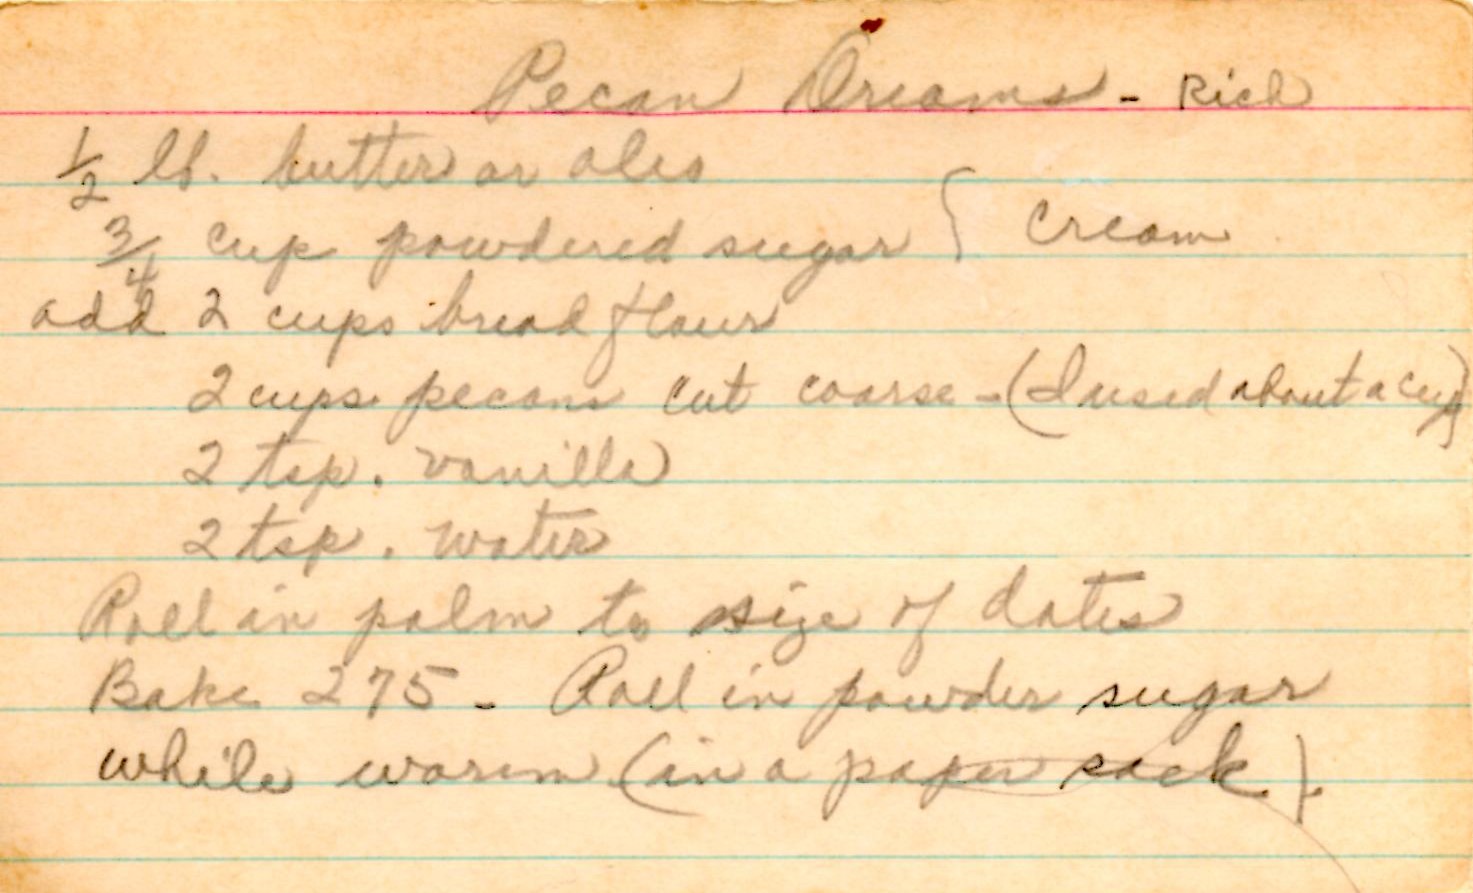 Pecan Dreams - Rich
1/2 lb. butter or oleo
3/4 cup powdered sugar } cream
add 2 cups bread flour
2 cups pecans cut coarse - (I used about a cup)
2 tsp. vanilla
2 tsp. water
Roll in palm to size of dates
Bake 275 - Roll in powder sugar
while warm (in a paper sack).